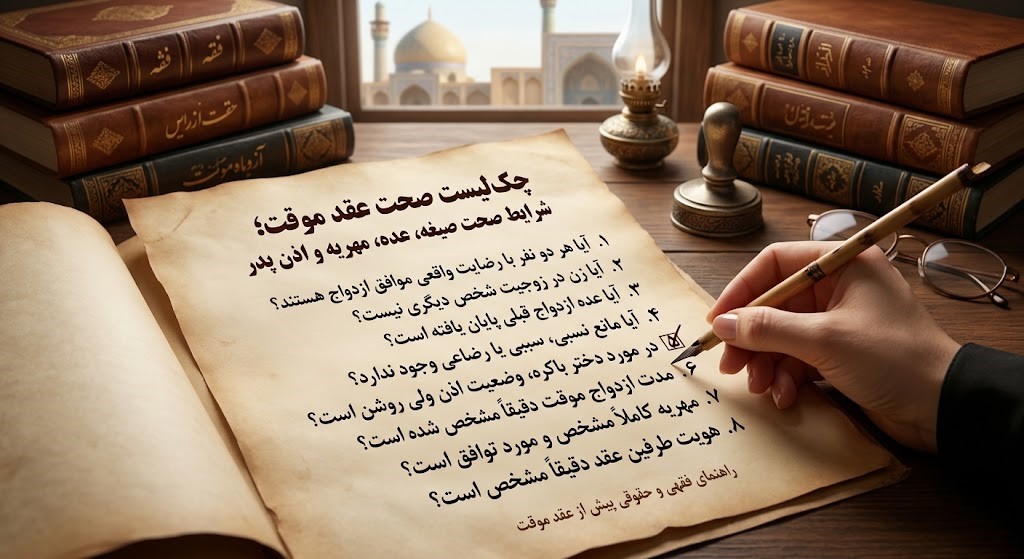 چک‌لیست صحت عقد موقت؛
شرایط صحت صیغه، عده، مهریه و اذن پدر
۱. آیا هر دو نفر با رضایت واقعی موافق ازدواج هستند؟
۲. آیا زن در زوجیت شخص دیگری نیست؟
۳. آیا عده ازدواج قبلی پایان یافته است؟
۴. آیا مانع نسبی، سببی یا رضاعی وجود ندارد؟
در مورد دختر باکره، وضعیت اذن ولی روشن است؟
۶. مدت ازدواج موقت دقیقاً مشخص شده است؟
۷. مهریه کاملاً مشخص و مورد توافق است؟
۸. هویت طرفین عقد دقیقاً مشخص است؟
راهنمای فقهی و حقوقی پیش از عقد موقت
فقه فقه